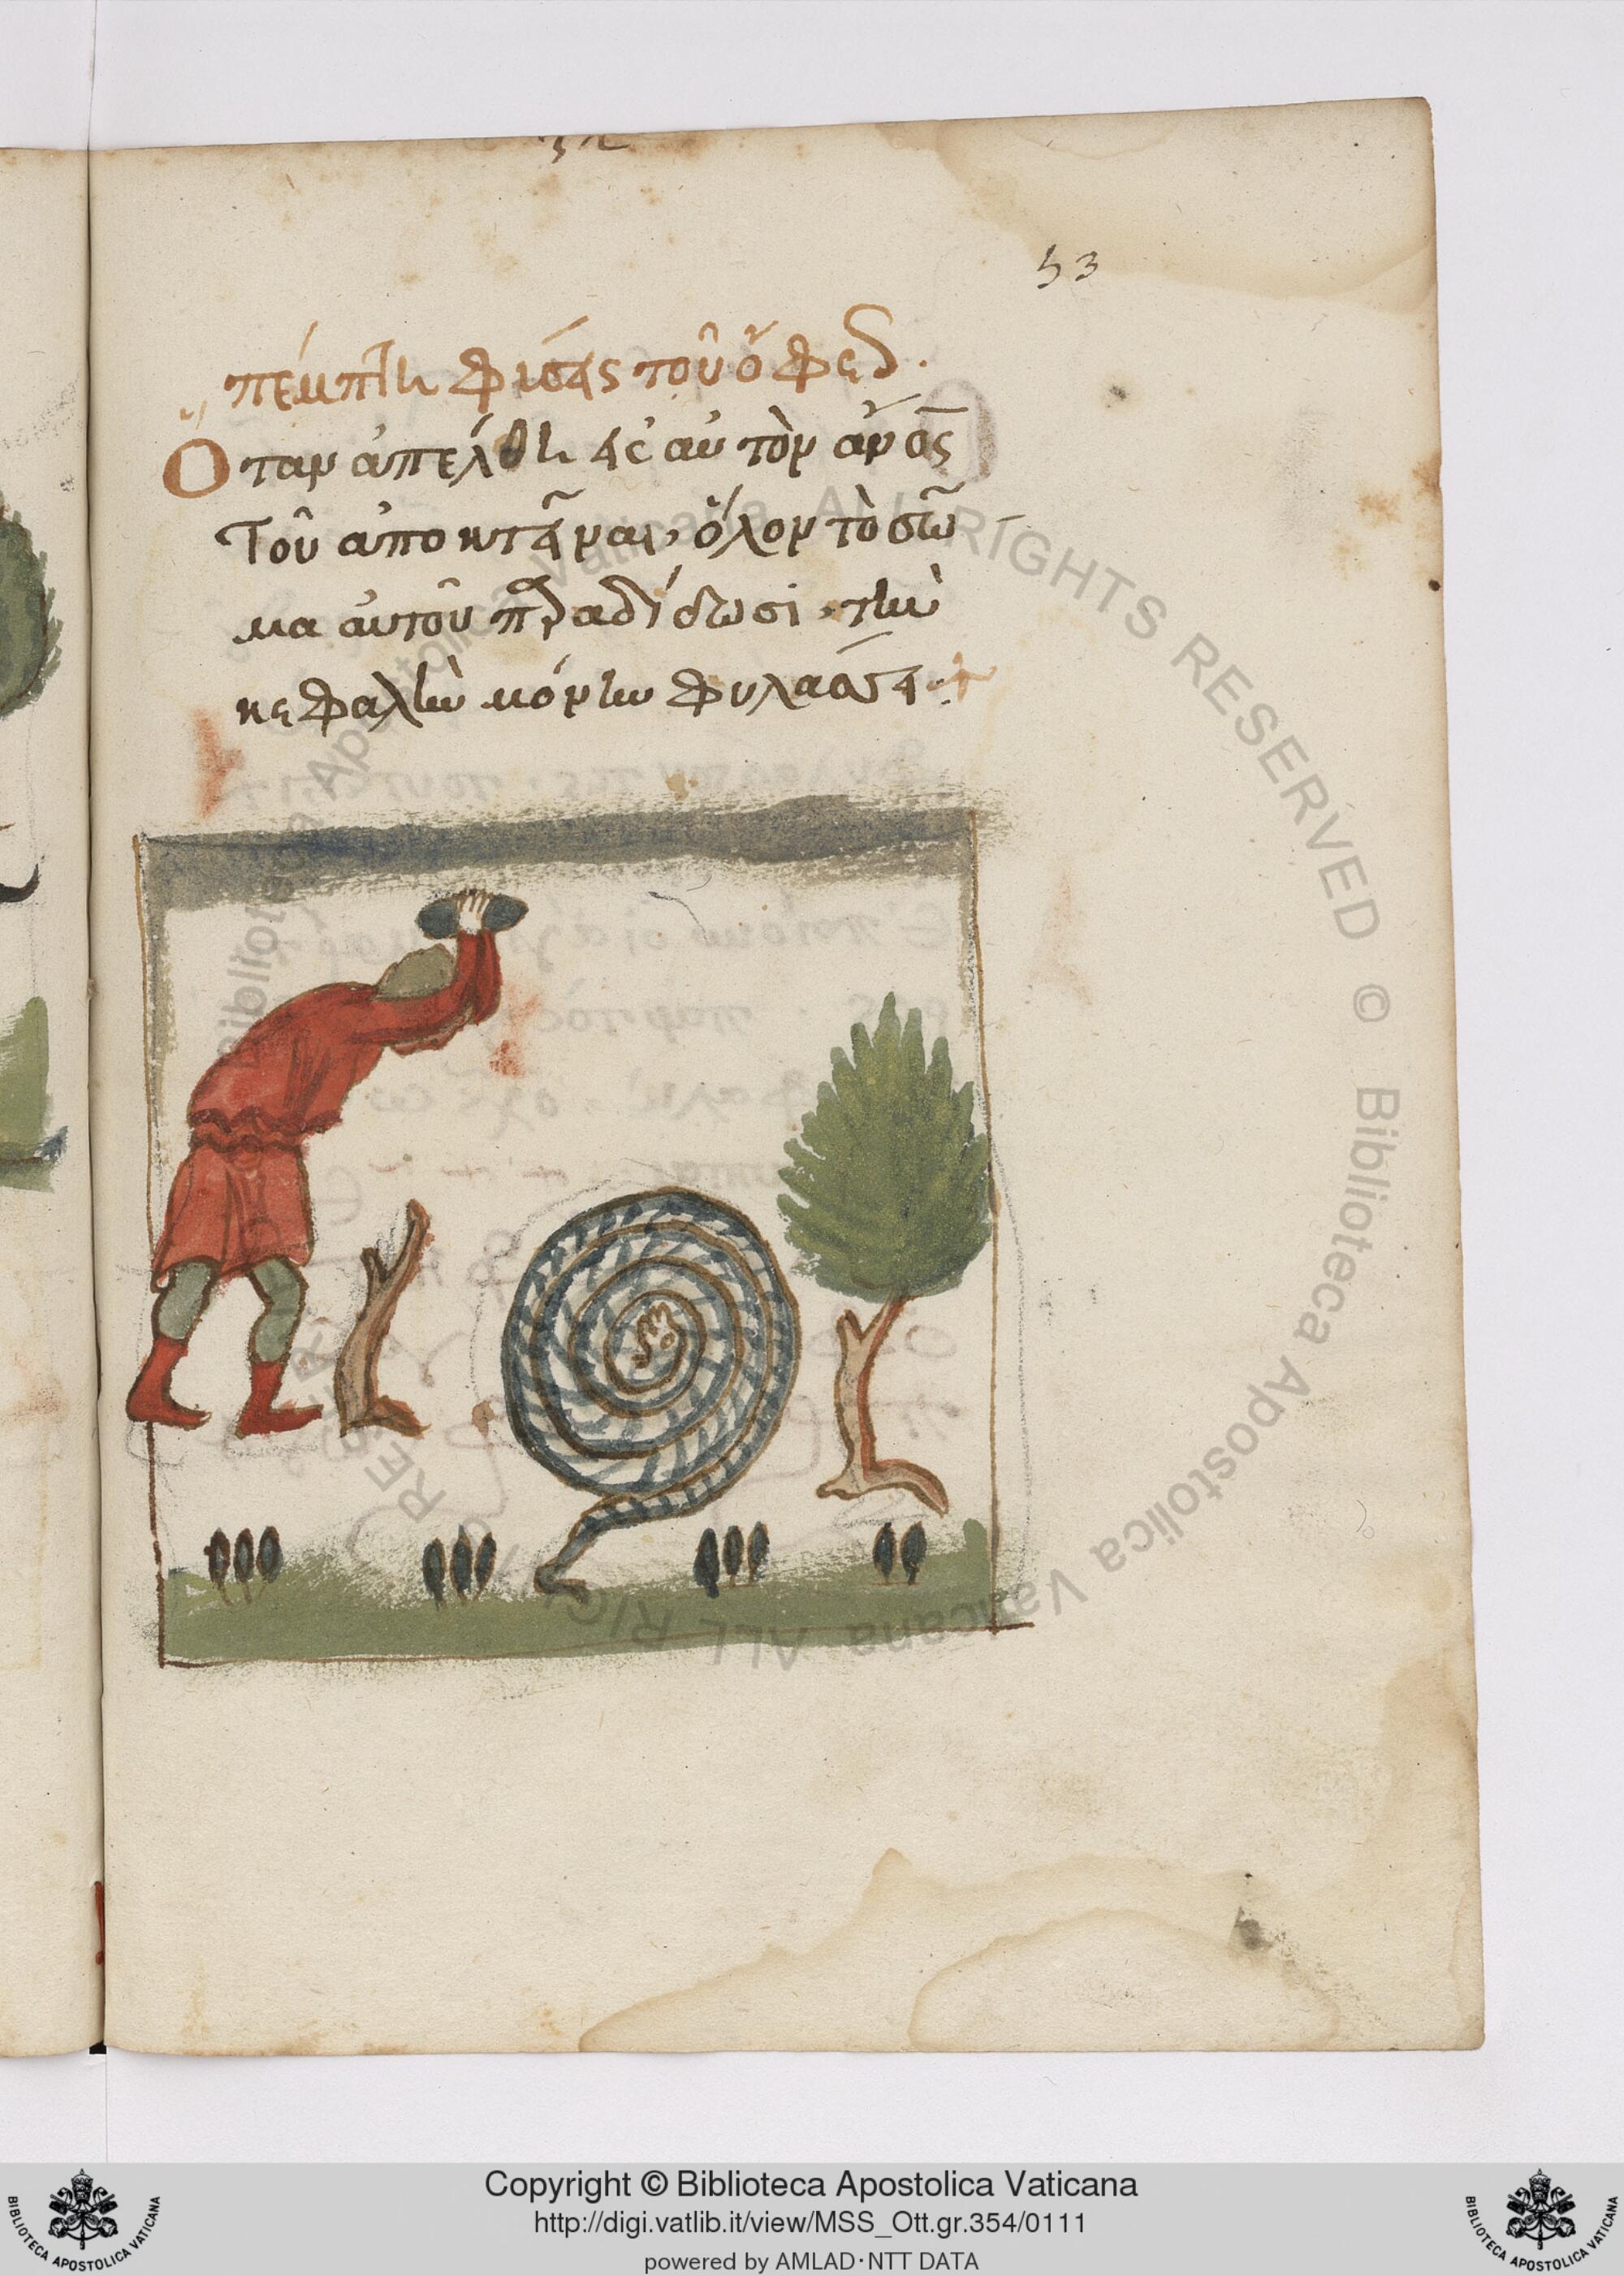 53
πέμπτη φύσις τοῦ ὄφεως.
Ὅταν ἀπέλθη εἰς αὐτὸν ἄνος
τοῦ ἀποκτεῖναι, ὅλον τὸ σῶ
μα αὐτοῦ παραδίδωσι, τὴν
κεφαλὴν μόνην φυλάσσει
Biblioteca Apostolica Vaticana ALL RIGHTS RESERVED © Biblioteca Apostolica Vaticana ALL RIGHTS RESERVED
Copyright © Biblioteca Apostolica Vaticana
http://digi.vatlib.it/view/MSS_Ott.gr.354/0111
powered by AMLAD·NTT DATA
BIBLIOTECA APOSTOLICA VATICANA
BIBLIOTECA APOSTOLICA VATICANA